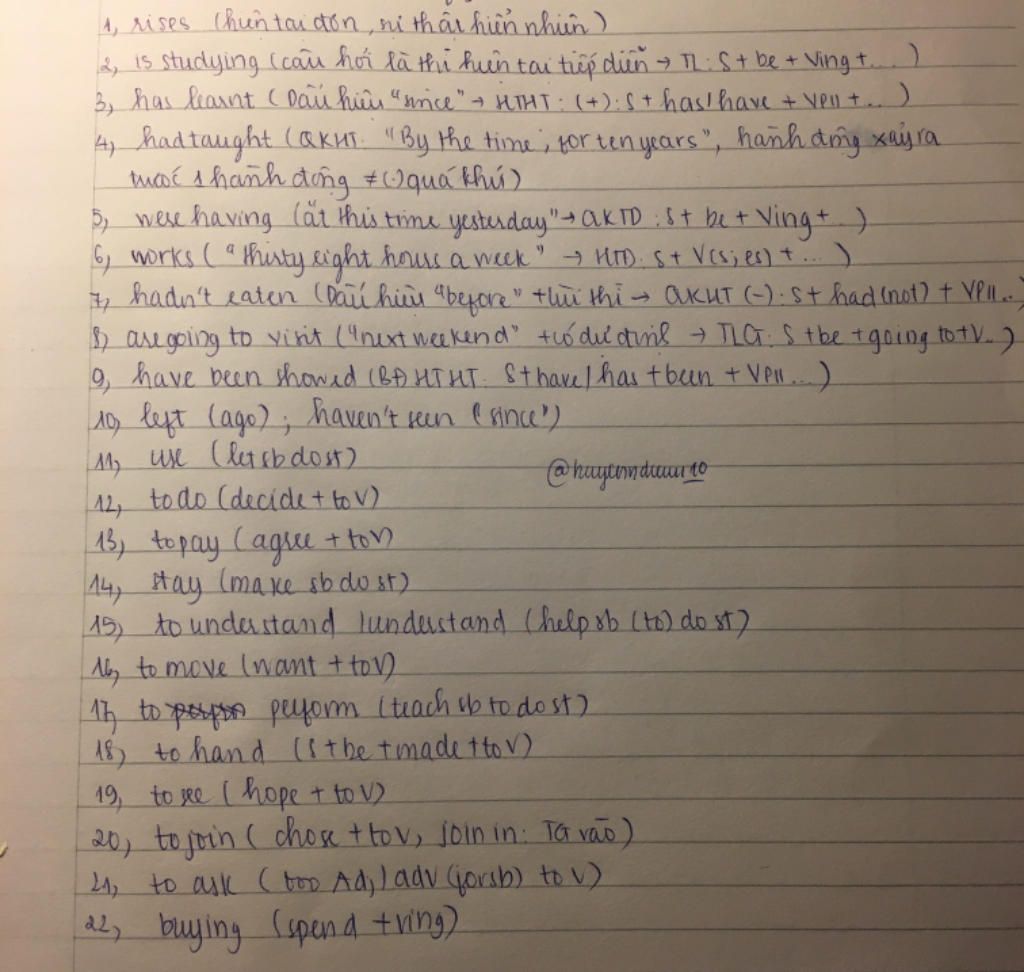 1, rises (hiện tại đơn, vì thật hiển nhiên)
2, is studying (câu hỏi là thì hiện tại tiếp diễn → TL: S + be + Ving + ... )
3, has learnt (Dấu hiệu "since" → HTHT: (+): S + has/have + VPII + .. )
4, had taught (QKHT. "By the time, for ten years", hành động xảy ra
trước 1 hành động ≠ (-) quá khứ)
5, were having (at this time yesterday" → QKTD: S + be + Ving + ..)
6, works ("thirty eight hours a week" → HTD: S + V(s;es) + ... )
7, hadn't eaten (Dấu hiệu "before" + lùi thì → QKHT (-): S + had (not) + VPII ..
8, are going to visit ("next weekend" + có dự định → TLG: S + be + going to + V.. )
9, have been showed (BĐ HTHT: S + have / has + been + VPII ... )
10, left (ago); haven't seen ("since")
11, use (let sb do st)
@huyenndieuu10
12, to do (decide + to V)
13, to pay (agree + to V)
14, stay (make sb do st)
15, to understand / understand (help sb (to) do st)
16, to move (want + to V)
17, to perform (teach sb to do st)
18, to hand (S + be + made + to V)
19, to see (hope + to V)
20, to join (chose + to V, join in: TG vào)
21, to ask (too Adj / adv (for sb) to V)
22, buying (spend + ving)